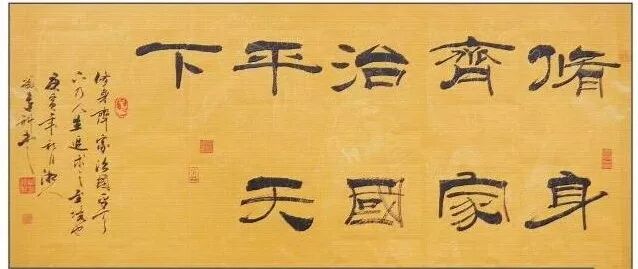 脩身
齊家
治國
平天
下
修身齊家治國平天
下乃人生追求之